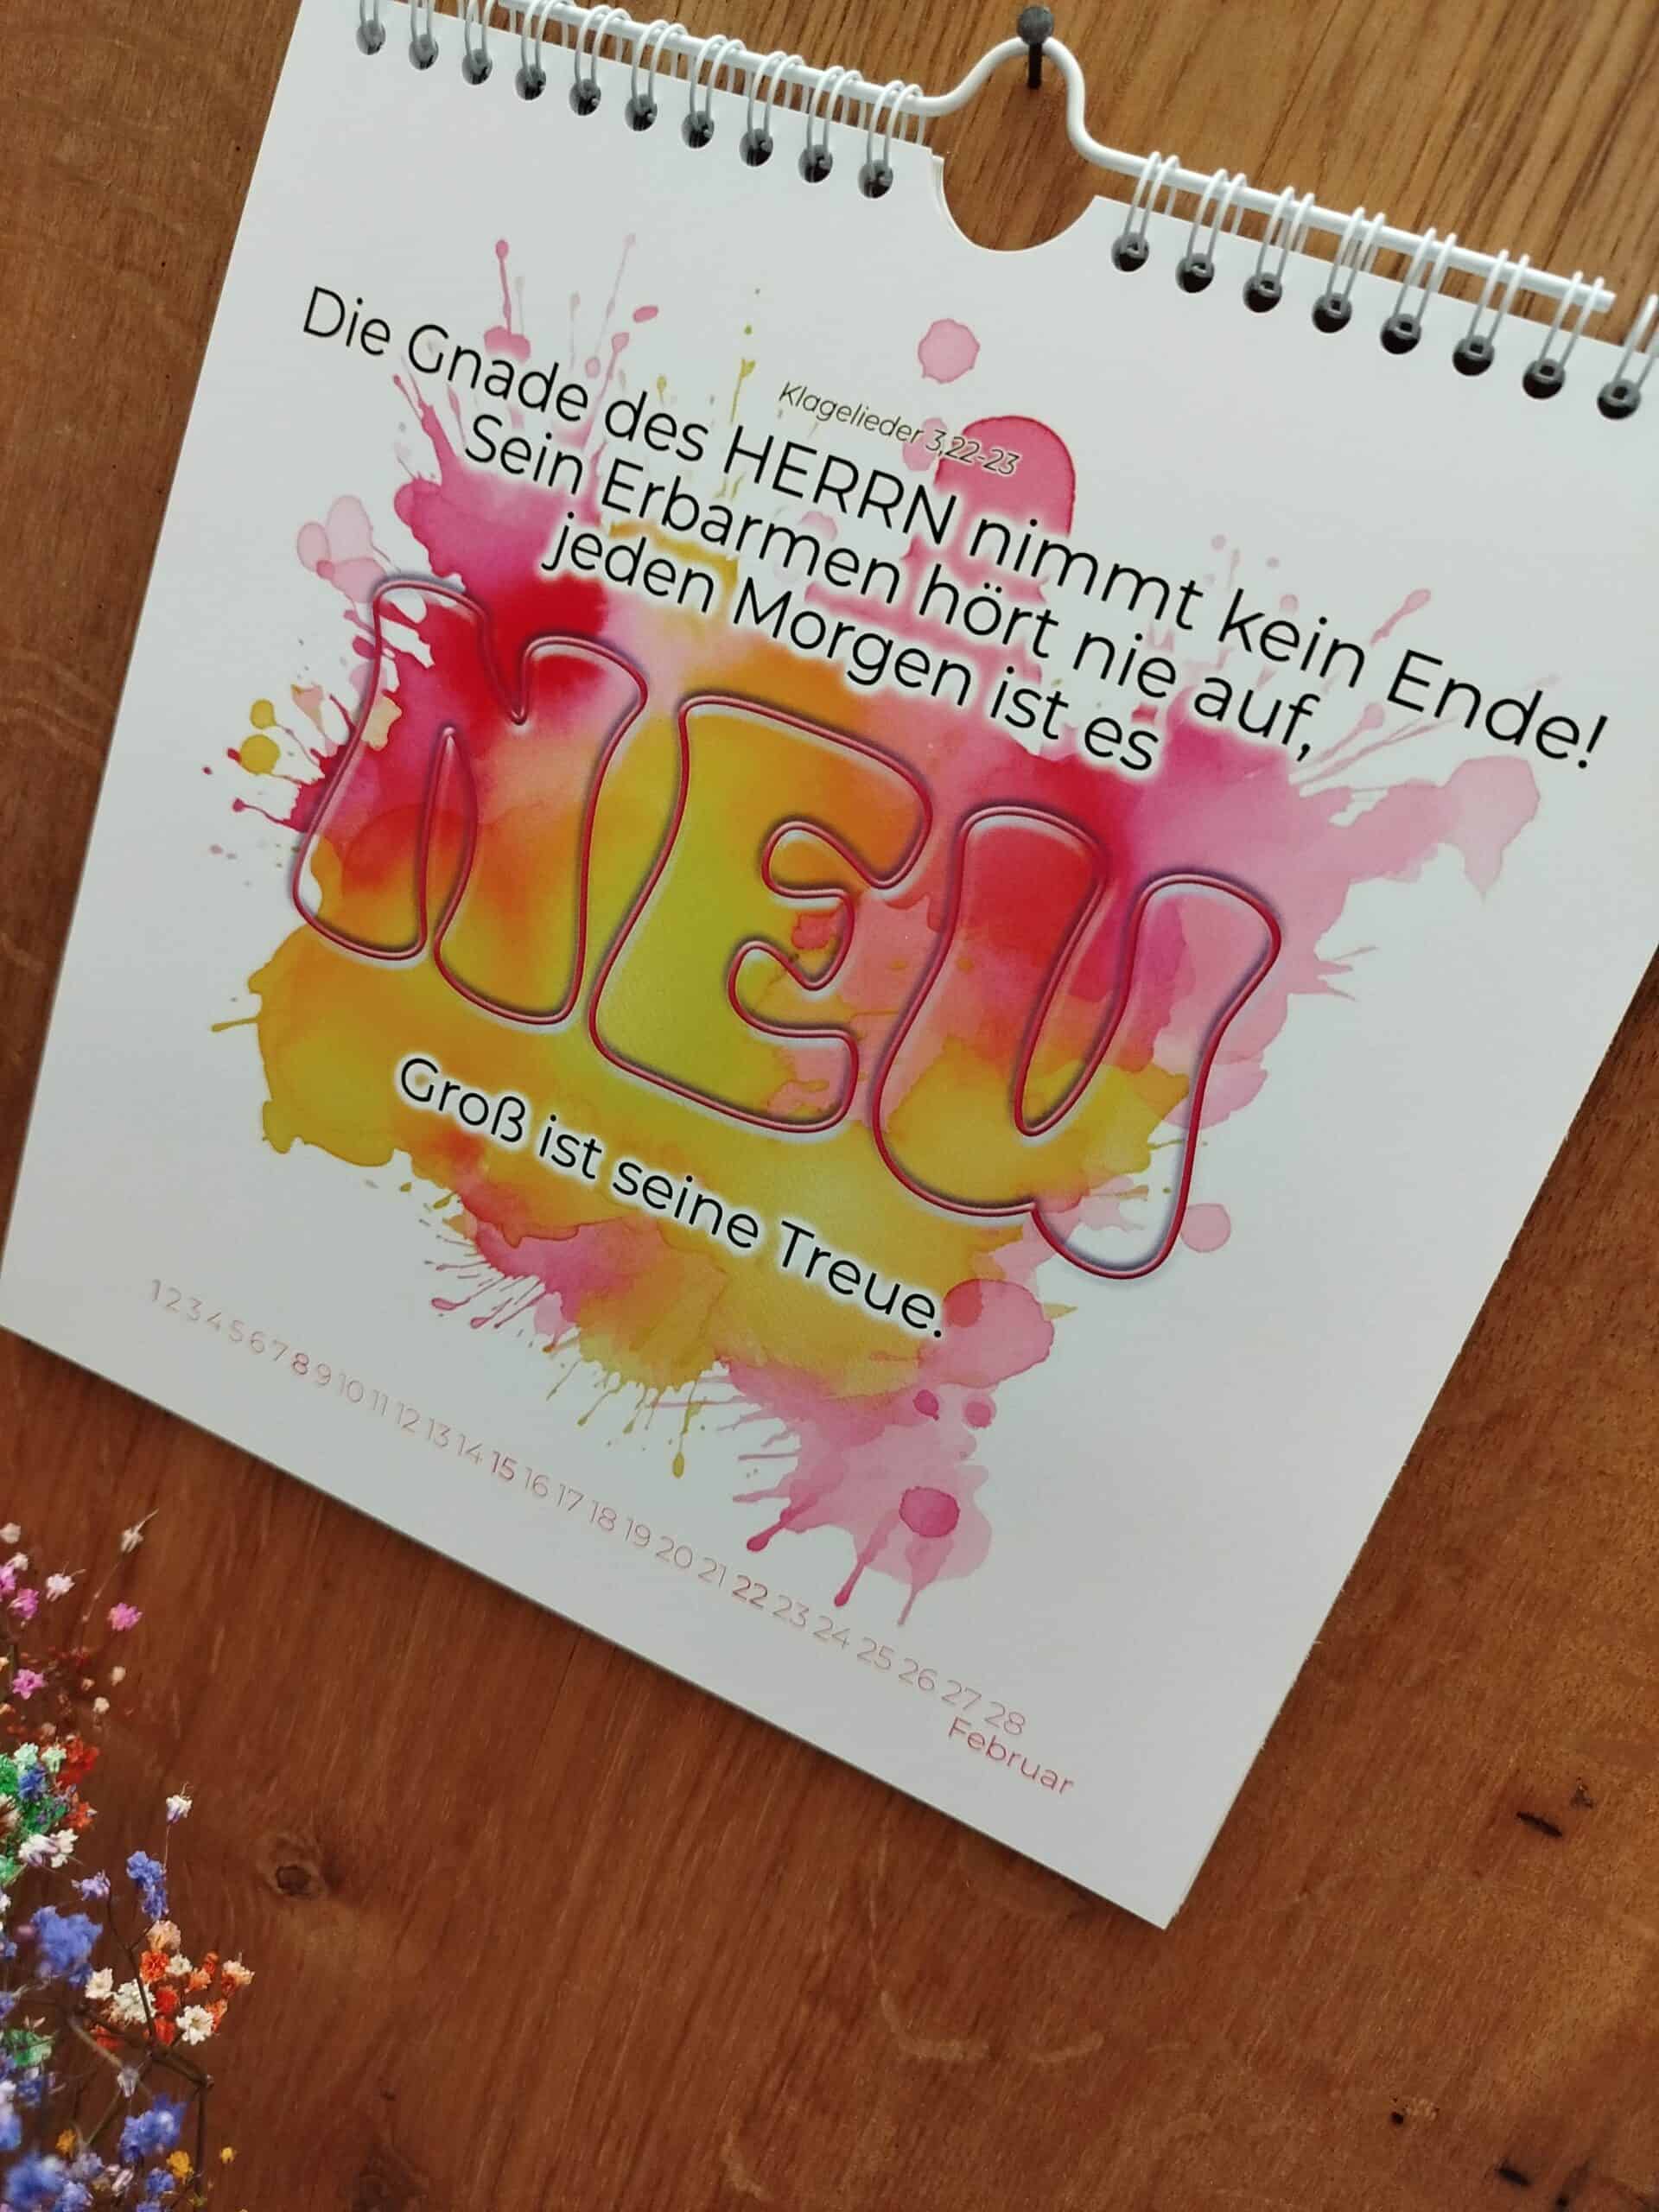 Klagelieder 3,22-23
Die Gnade des HERRN nimmt kein Ende!
Sein Erbarmen hört nie auf,
jeden Morgen ist es
NEU
Groß ist seine Treue.
1 2 3 4 5 6 7 8 9 10 11 12 13 14 15 16 17 18 19 20 21 22 23 24 25 26 27 28
Februar